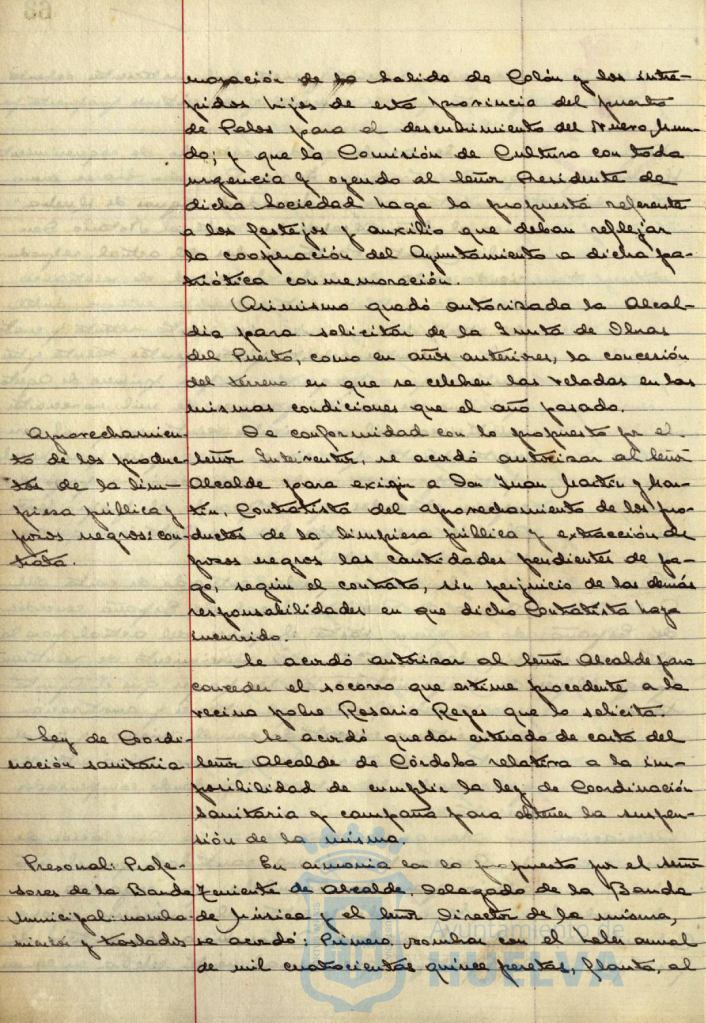 moración de la salida de Colón y los intré-
pidos hijos de esta provincia del puerto
de Palos para el descubrimiento del Nuevo Mun-
do; y que la Comisión de Cultura con toda
urgencia y oyendo al Señor Presidente de
dicha Sociedad haga la propuesta referente
a los festejos y auxilio que deban reflejar
la cooperación del Ayuntamiento a dicha pa-
triótica conmemoración.
Asimismo quedó autorizada la Alcal-
día para solicitar de la Junta de Obras
del Puerto, como en años anteriores, la concesión
del terreno en que se celebren las veladas en las
mismas condiciones que el año pasado.
Aprovechamien-
to de los produc-
tos de la lim-
pieza pública y
pozos negros: con-
trata.
De conformidad con lo propuesto por el
Señor Interventor, se acordó autorizar al Señor
Alcalde para exigir a Don Juan Martín y Mar-
tín, Contratista del aprovechamiento de los pro-
ductos de la limpieza pública y extracción de
pozos negros las cantidades pendientes de pa-
go, según el contrato, sin perjuicio de las demás
responsabilidades en que dicho Contratista haya
incurrido.
Se acordó autorizar al Señor Alcalde para
conceder el socorro que estime procedente a la
vecina pobre Rosario Reyes que lo solicita.
Ley de Coordi-
nación sanitaria
Se acordó quedar enterado de carta del
Señor Alcalde de Córdoba relativa a la im-
posibilidad de cumplir la ley de Coordinación
sanitaria y campaña para obtener la suspen-
sión de la misma.
Presonal: Profe-
sores de la Banda
Municipal: nombra-
mientos y traslados
En armonía con lo propuesto por el Señor
Teniente de Alcalde, Delegado de la Banda
de Música y el Señor Director de la misma,
se acordó: Primero, nombrar con el haber anual
de mil cuatrocientas quince pesetas, flauta, al
Ayuntamiento de
HUELVA